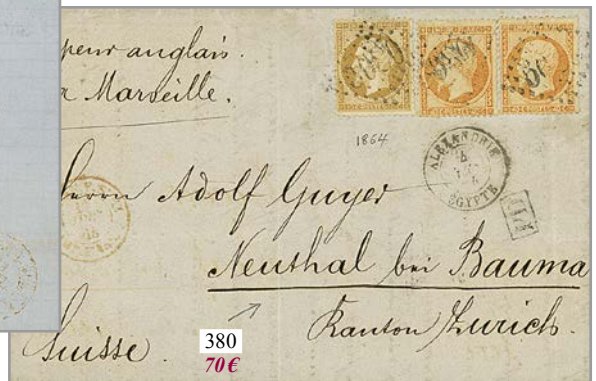 peur anglais.
a Marseille.
1864
ALEXANDRIE
EGYPTE
PD
Herrn Adolf Guyer
Neuthal bei Bauma
Kanton Zurich.
Suisse.
380
70€